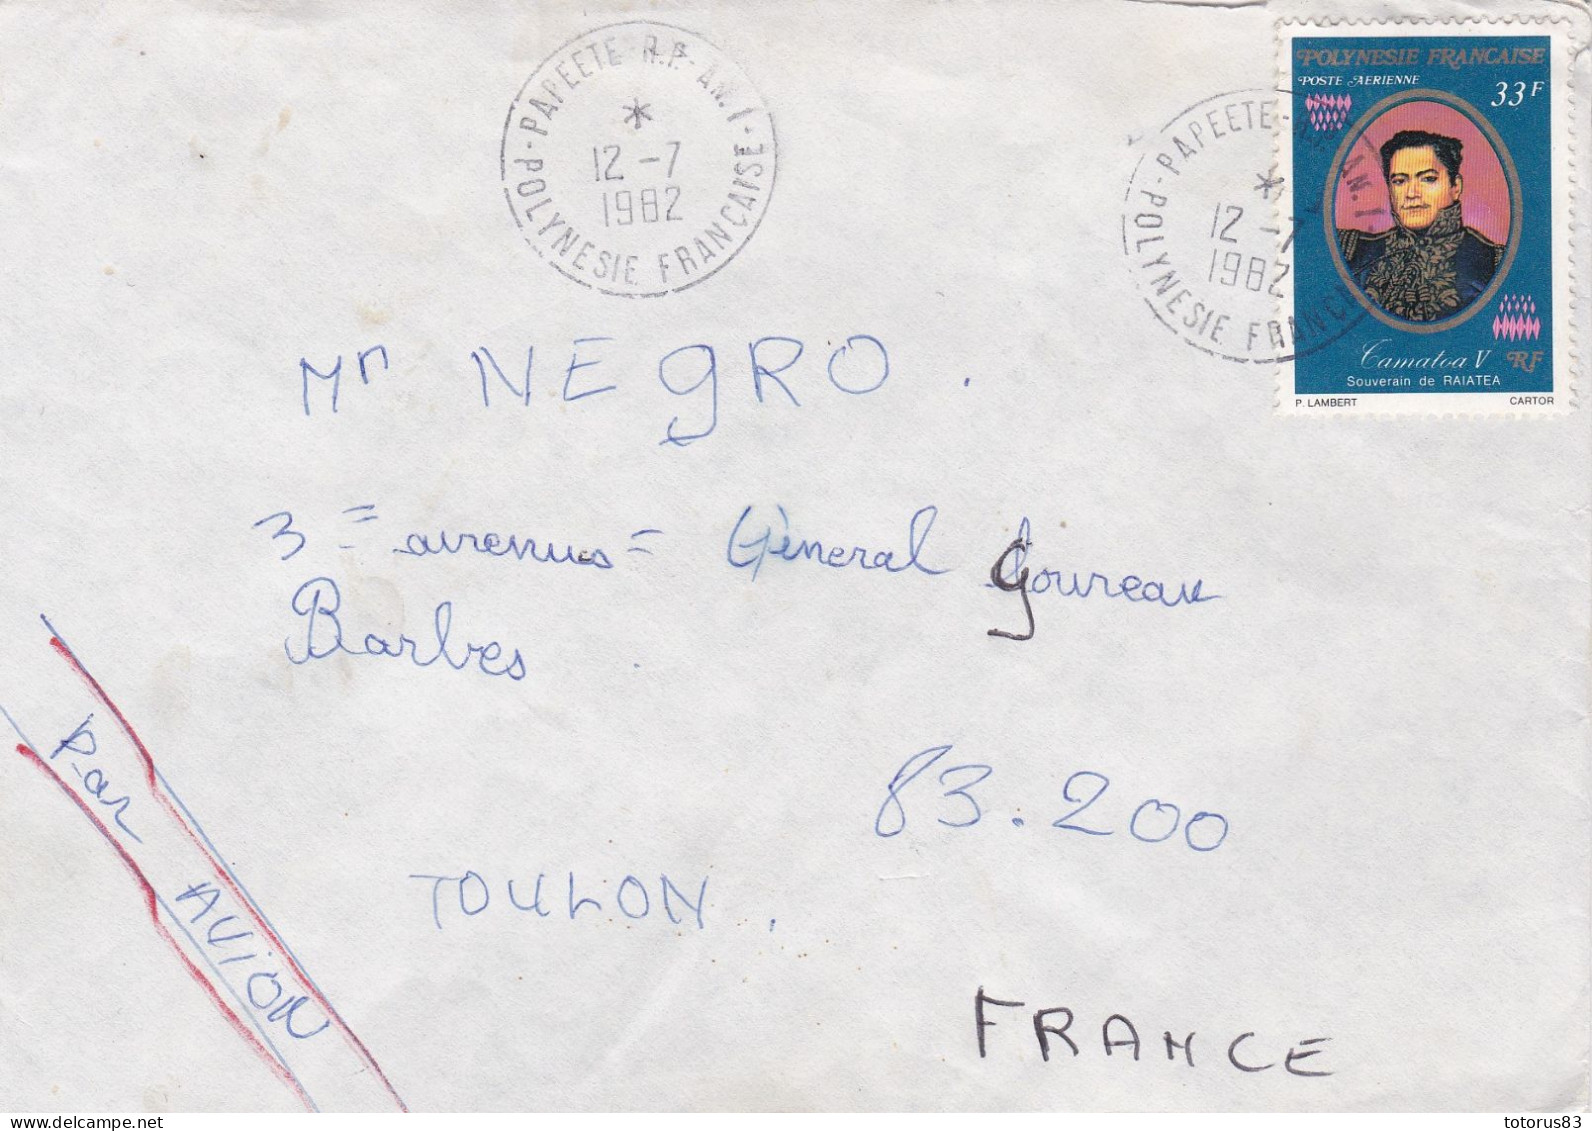 PAPEETE R.P. AN. 1
*
12 -7
1982
POLYNESIE FRANÇAISE
PAPEETE AN. 1
*
12 -7
1982
POLYNESIE FRANÇ
POLYNESIE FRANCAISE
POSTE AERIENNE
33F
Tamatoa V
RF
Souverain de RAIATEA
P. LAMBERT CARTOR
Mr NEGRO.
3 = avenus = Géneral Goureau
Barbes
83.200
TOULON.
FRANCE
Par AVION
totorus83